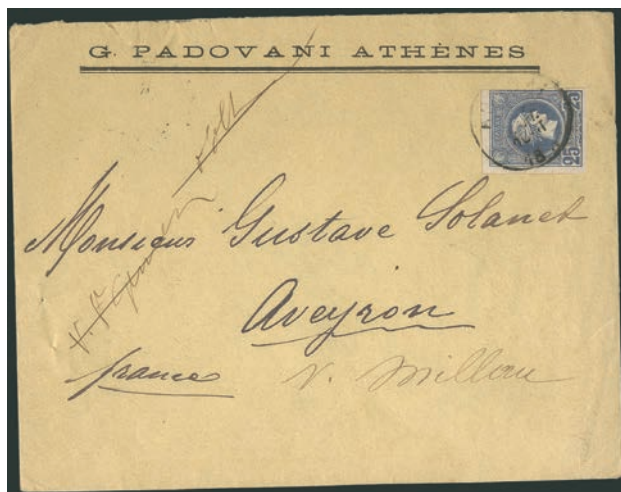 G. PADOVANI ATHÈNES
25 25
Monsieur Gustave Solanet
Aveyron
france v. Millau